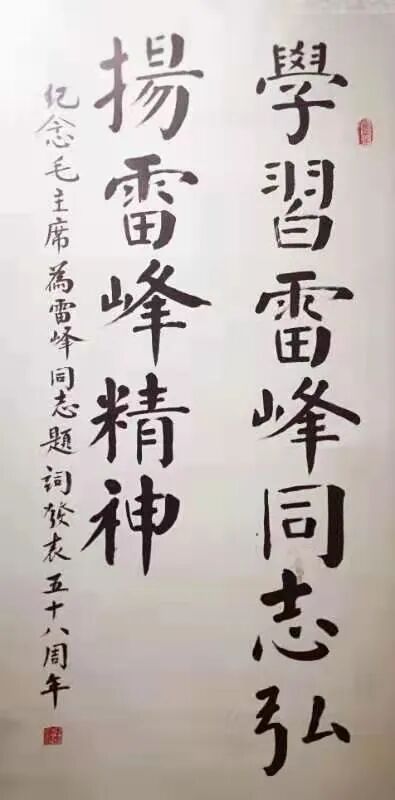 學習雷峰同志弘
揚雷峰精神
纪念毛主席為雷峰同志題詞發表五十八周年